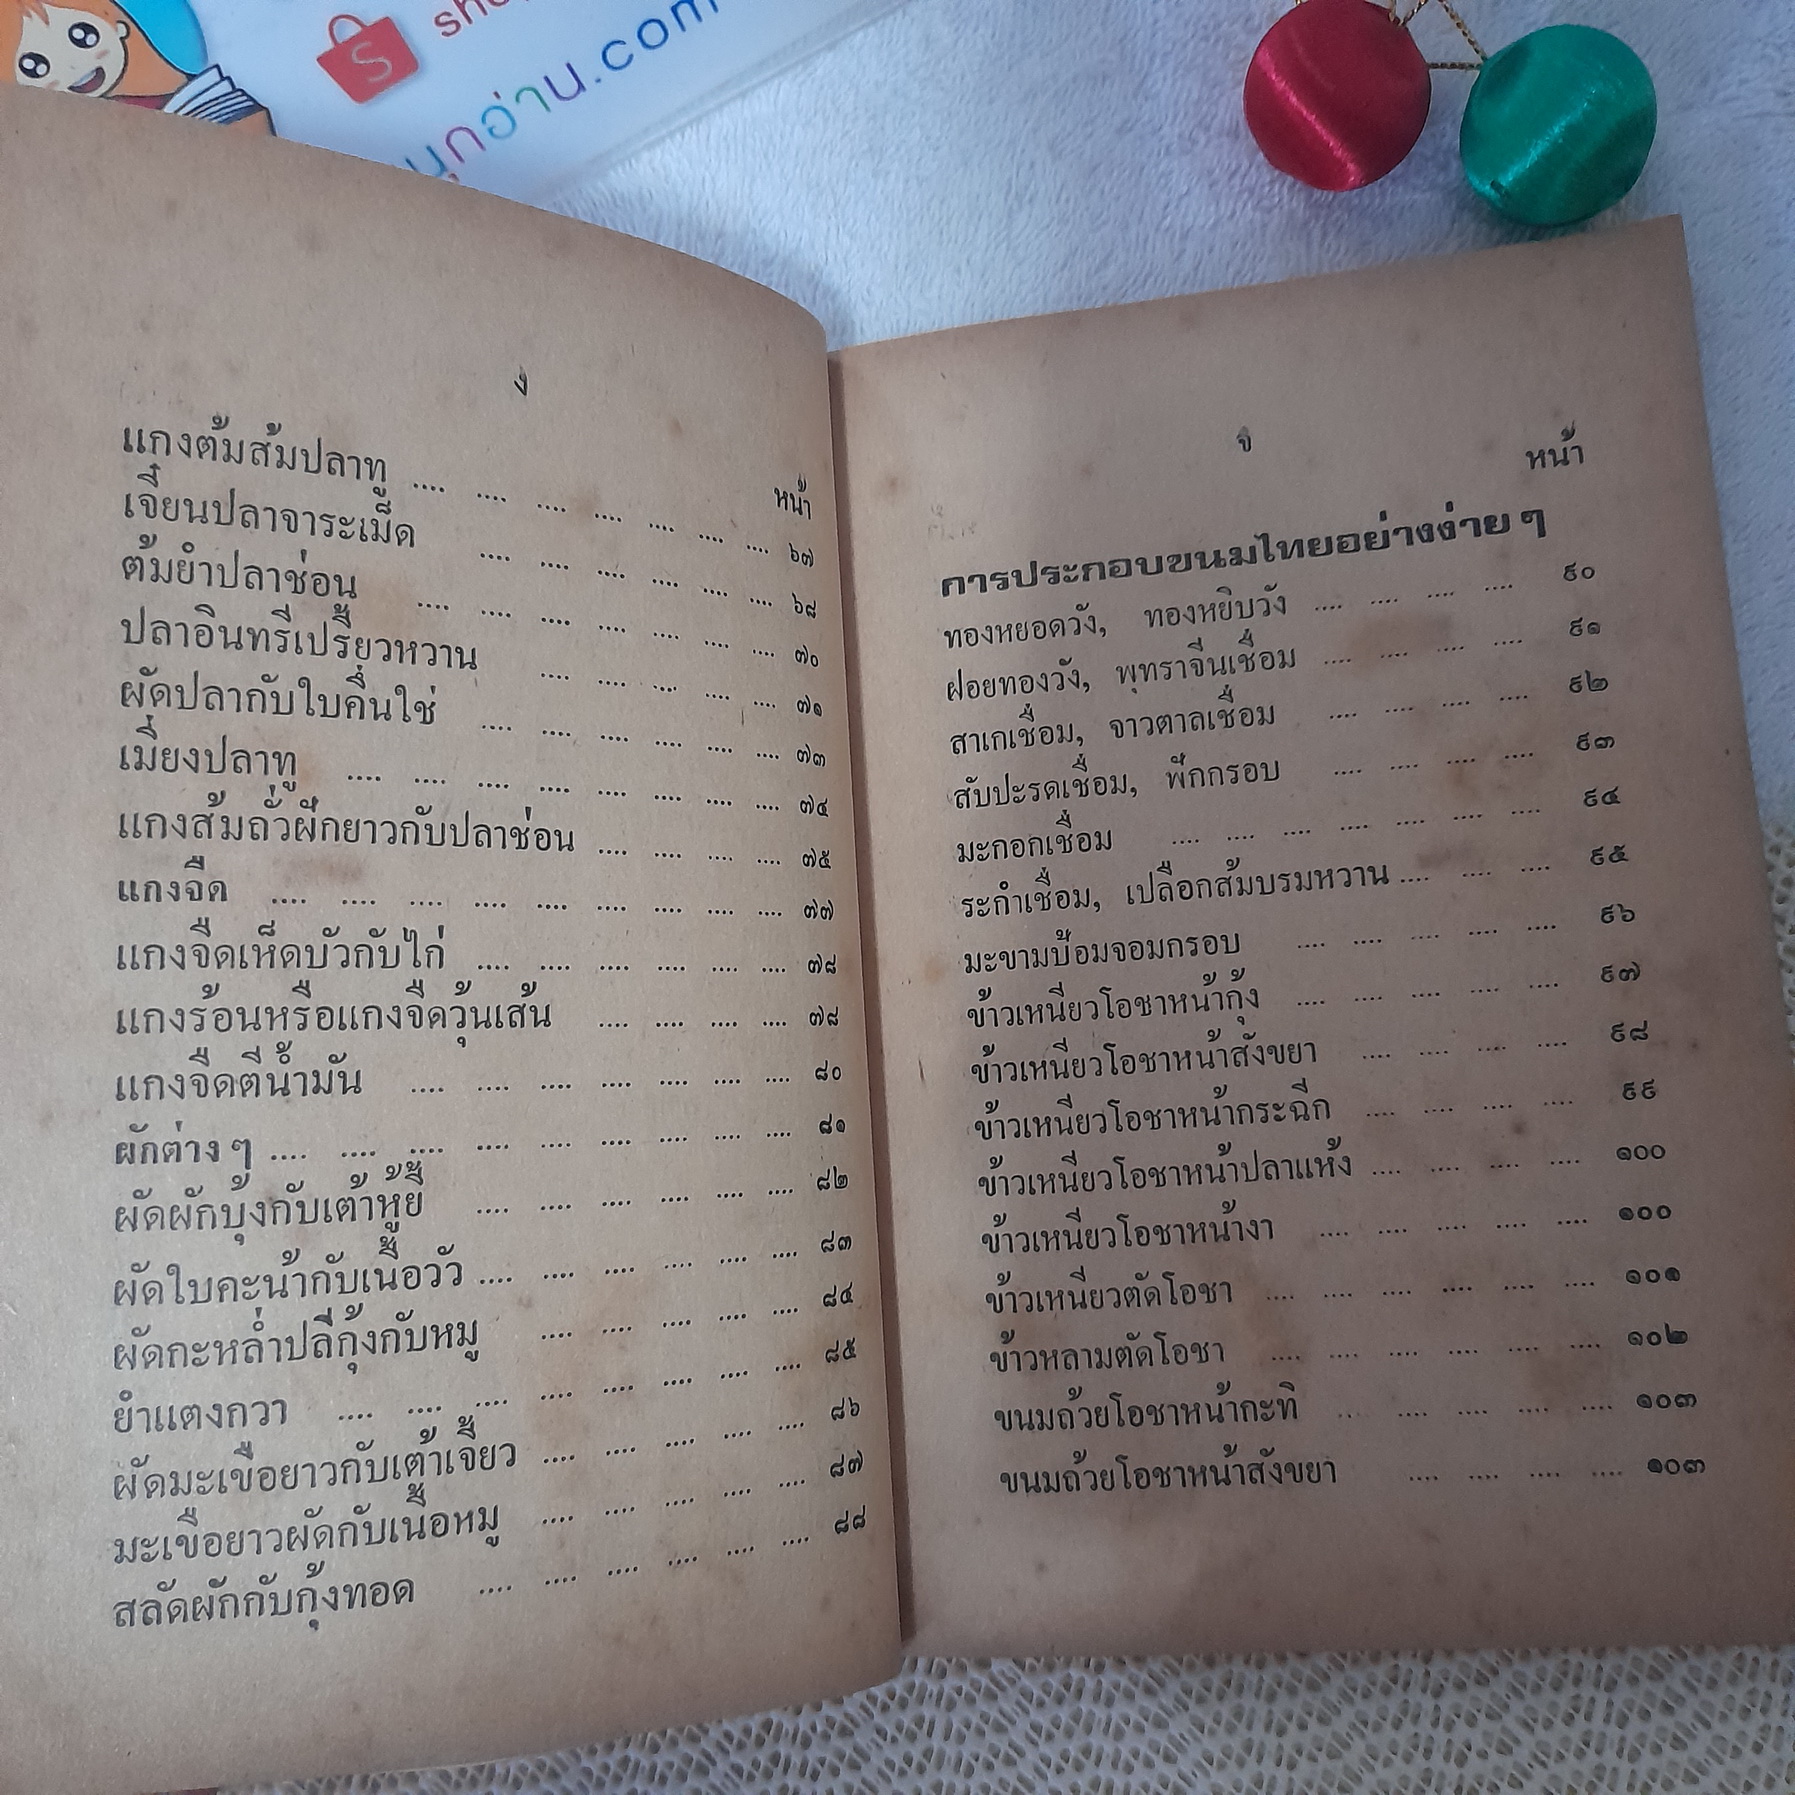 S
sho
นุกอ่าน.com
ง
หน้า
แกงต้มส้มปลาทู .... .... .... .... .... .... .... ๖๗
เจี๋ยนปลาจาระเม็ด .... .... .... .... .... .... ๖๘
ต้มยำปลาช่อน .... .... .... .... .... .... .... ๗๐
ปลาอินทรีเปรี้ยวหวาน .... .... .... .... .... ๗๑
ผัดปลากับใบคึ่นใช่ .... .... .... .... .... .... ๗๓
เมี่ยงปลาทู .... .... .... .... .... .... .... .... ๗๔
แกงส้มถั่วฝักยาวกับปลาช่อน .... .... .... .... ๗๕
แกงจืด .... .... .... .... .... .... .... .... .... ๗๗
แกงจืดเห็ดบัวกับไก่ .... .... .... .... .... .... ๗๘
แกงร้อนหรือแกงจืดวุ้นเส้น .... .... .... .... ๗๘
แกงจืดตีน้ำมัน .... .... .... .... .... .... .... ๘๐
ผักต่าง ๆ .... .... .... .... .... .... .... .... .... ๘๑
ผัดผักบุ้งกับเต้าหู้ยี้ .... .... .... .... .... .... ๘๒
ผัดใบคะน้ากับเนื้อวัว .... .... .... .... .... .... ๘๓
ผัดกะหล่ำปลีกุ้งกับหมู .... .... .... .... .... ๘๔
ยำแตงกวา .... .... .... .... .... .... .... .... ๘๕
ผัดมะเขือยาวกับเต้าเจี้ยว .... .... .... .... .... ๘๖
มะเขือยาวผัดกับเนื้อหมู .... .... .... .... .... ๘๗
สลัดผักกับกุ้งทอด .... .... .... .... .... .... ๘๘
จ
หน้า
การประกอบขนมไทยอย่างง่าย ๆ
ทองหยอดวัง, ทองหยิบวัง .... .... .... .... ๙๐
ฝอยทองวัง, พุทราจีนเชื่อม .... .... .... .... ๙๑
สาเกเชื่อม, จาวตาลเชื่อม .... .... .... .... ๙๒
สับปะรดเชื่อม, ฟักกรอบ .... .... .... .... ๙๓
มะกอกเชื่อม .... .... .... .... .... .... .... ๙๔
ระกำเชื่อม, เปลือกส้มบรมหวาน .... .... .... ๙๕
มะขามป้อมจอมกรอบ .... .... .... .... .... ๙๖
ข้าวเหนียวโอชาหน้ากุ้ง .... .... .... .... .... ๙๗
ข้าวเหนียวโอชาหน้าสังขยา .... .... .... .... ๙๘
ข้าวเหนียวโอชาหน้ากระฉีก .... .... .... .... ๙๙
ข้าวเหนียวโอชาหน้าปลาแห้ง .... .... .... .... ๑๐๐
ข้าวเหนียวโอชาหน้างา .... .... .... .... .... ๑๐๐
ข้าวเหนียวตัดโอชา .... .... .... .... .... .... ๑๐๑
ข้าวหลามตัดโอชา .... .... .... .... .... .... ๑๐๒
ขนมถ้วยโอชาหน้ากะทิ .... .... .... .... .... ๑๐๓
ขนมถ้วยโอชาหน้าสังขยา .... .... .... .... ๑๐๓